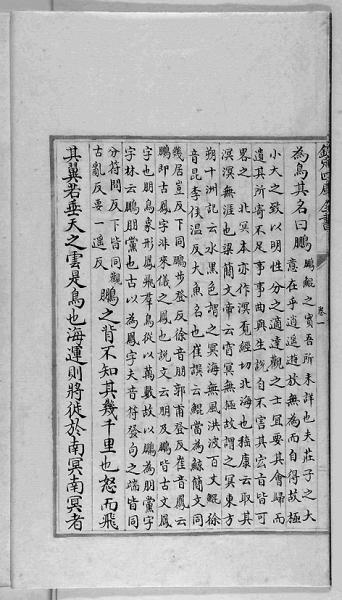 欽定四庫全書 卷一
為鳥其名曰鵬
鵬鯤之實吾所未詳也夫莊子之大
意在乎逍遙遊放無為而自得故極
小大之致以明性分之適達觀之士宜要其會歸而
遺其所寄不足事事曲與生說自不害其宏旨皆可
畧之 北冥本亦作溟覓經切北海也嵇康云取其
溟漠無涯也梁簡文帝云窅冥無極故謂之冥東方
朔十洲記云水黑色謂之冥海無風洪波百丈 鯤徐
音昆李侯温反大魚名也崔譔云鯤當為鯨簡文同
幾居豈反下同鵬步登反徐音朋郭甫登反崔音鳳云
鵬即古鳳字非來儀之鳳也說文云朋及鵬皆古文鳳
字也朋鳥象形鳳飛羣鳥從以萬數故以鵬為朋黨字
字林云鵬朋黨也古以為鳳字夫音符發句之端皆同
分符問反下皆同觀
古亂反要一遥反
鵬之背不知其幾千里也怒而飛
其翼若垂天之雲是鳥也海運則將徙於南冥南冥者